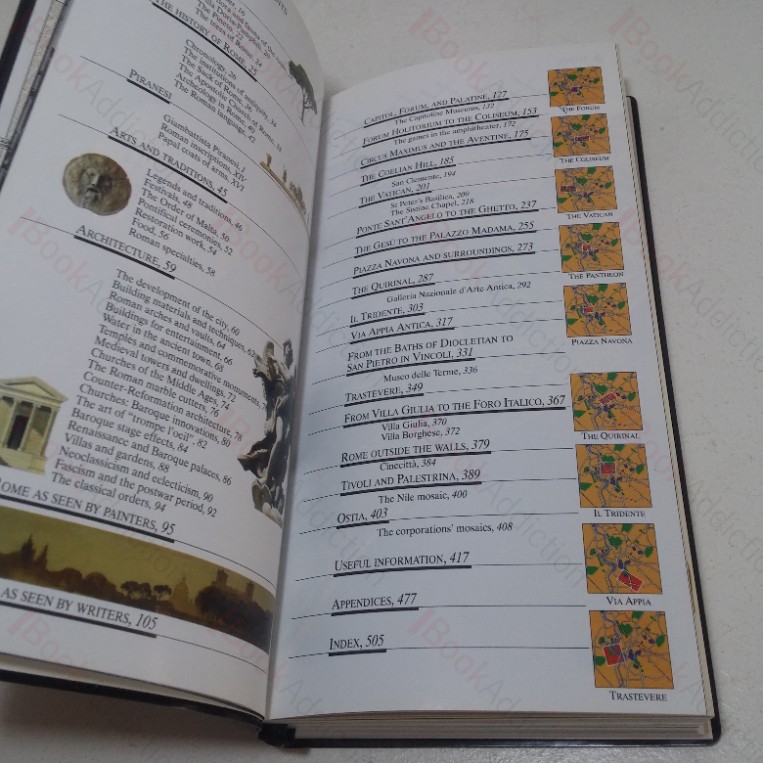 THE HISTORY OF ROME, 25
Chronology, 26
The institutions of antiquity, 34
The Sack of Rome, 36
The Apostolic Church of Rome, 38
Archeology in Rome, 40
The Roman language, 42
PIRANESI
Giambattista Piranesi, I
Roman inscriptions, XII
Papal coats of arms, XVI
ARTS AND TRADITIONS, 45
Legends and traditions, 46
Festivals, 48
The Order of Malta, 50
Pontifical ceremonies, 52
Restoration work, 54
Food, 56
Roman specialties, 58
ARCHITECTURE, 59
The development of the city, 60
Building materials and techniques, 62
Roman arches and vaults, 64
Buildings for entertainment, 66
Water in the ancient town, 68
Temples and commemorative monuments, 70
Medieval towers and dwellings, 72
Churches of the Middle Ages, 74
The Roman marble cutters, 76
Counter-Reformation architecture, 78
Churches: Baroque innovations, 80
The art of "trompe l'oeil", 82
Baroque stage effects, 84
Renaissance and Baroque palaces, 86
Villas and gardens, 88
Neoclassicism and eclecticism, 90
Fascism and the postwar period, 92
The classical orders, 94
ROME AS SEEN BY PAINTERS, 95
AS SEEN BY WRITERS, 105
CAPITOL, FORUM, AND PALATINE, 127
The Capitoline Museums, 132
FORUM HOLITORIUM TO THE COLISEUM, 153
The games in the amphitheater, 172
CIRCUS MAXIMUS AND THE AVENTINE, 175
THE COELIAN HILL, 185
San Clemente, 194
THE VATICAN, 201
St Peter's Basilica, 209
The Sistine Chapel, 218
PONTE SANT'ANGELO TO THE GHETTO, 237
THE GESU TO THE PALAZZO MADAMA, 255
PIAZZA NAVONA AND SURROUNDINGS, 273
THE QUIRINAL, 287
Galleria Nazionale d'Arte Antica, 292
IL TRIDENTE, 303
VIA APPIA ANTICA, 317
FROM THE BATHS OF DIOCLETIAN TO
SAN PIETRO IN VINCOLI, 331
Museo delle Terme, 336
TRASTEVERE, 349
FROM VILLA GIULIA TO THE FORO ITALICO, 367
Villa Giulia, 370
Villa Borghese, 372
ROME OUTSIDE THE WALLS, 379
Cinecittà, 384
TIVOLI AND PALESTRINA, 389
The Nile mosaic, 400
OSTIA, 403
The corporations' mosaics, 408
USEFUL INFORMATION, 417
APPENDICES, 477
INDEX, 505
THE FORUM
THE COLISEUM
THE VATICAN
THE PANTHEON
PIAZZA NAVONA
THE QUIRINAL
IL TRIDENTE
VIA APPIA
TRASTEVERE